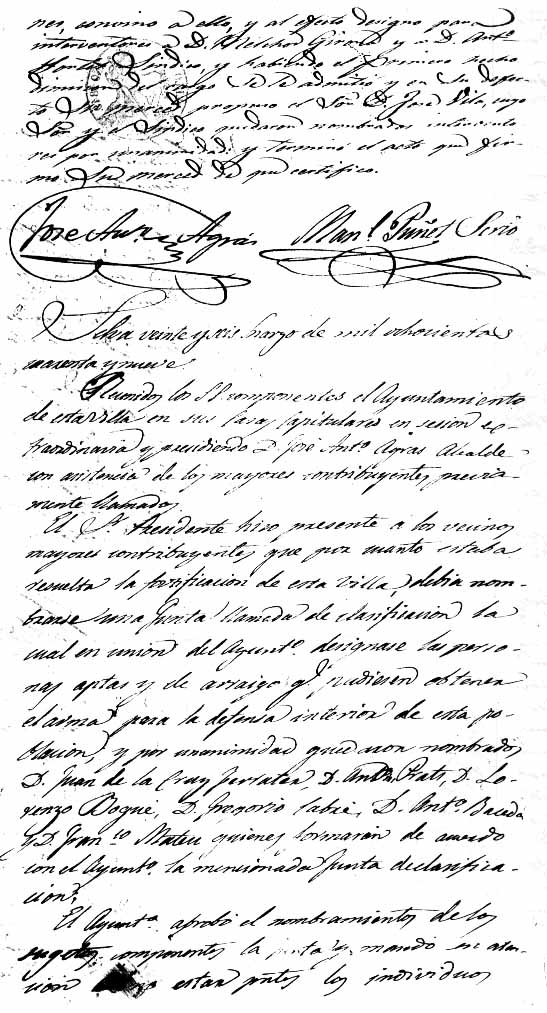 nes, convino a ello, y al efecto designo para
interventores a D. Melchor Girona y a D. Antº
Síndico, y habiendo el primero hecho
dimision del cargo se le admitió y en su defec-
to Su merced propuso el Sor D. José Vila, cuyo
Sor y el Síndico quedaron nombrados interventо
res por unanimidad: y terminó el acto que fir-
mo Su merced de que certifico.
Jose Antº Agrás Manl. Puñet Serio
veinte y seis Marzo de mil ochocientos
cuarenta y nueve
Reunidos los SS componentes el Ayuntamiento
de esta Villa en sus Casas Capitulares en sesion es-
traordinaria y presidiendo D. José Antº Agras Alcalde
con asistencia de los mayores contribuyentes previa-
mente llamados
El Sr. Presidente hizo presente a los vecinos
mayores contribuyentes que por cuanto estaba
resuelta la fortificacion de esta Villa, debia nom-
brarse una Junta llamada de clasificacion la
cual en union del Ayuntº designase las perso-
nas aptas y de arraigo qe pudiesen obtener
el arma para la defensa interior de esta po-
blacion, y por unanimidad quedaron nombrados
D. Juan de la Cruz D. Antº Prats, D. Lo-
renzo Bogué, D. Gregorio Sabié, D. Antº Baceda
y D. Franco Mateu quienes formaran de acuerdo
con el Ayuntº la mencionada Junta de clasifica-
cion.
El Ayuntº aprobó el nombramientos de los
sugetos componentes la junta y mandó en aten-
cion estar pntes los individuos